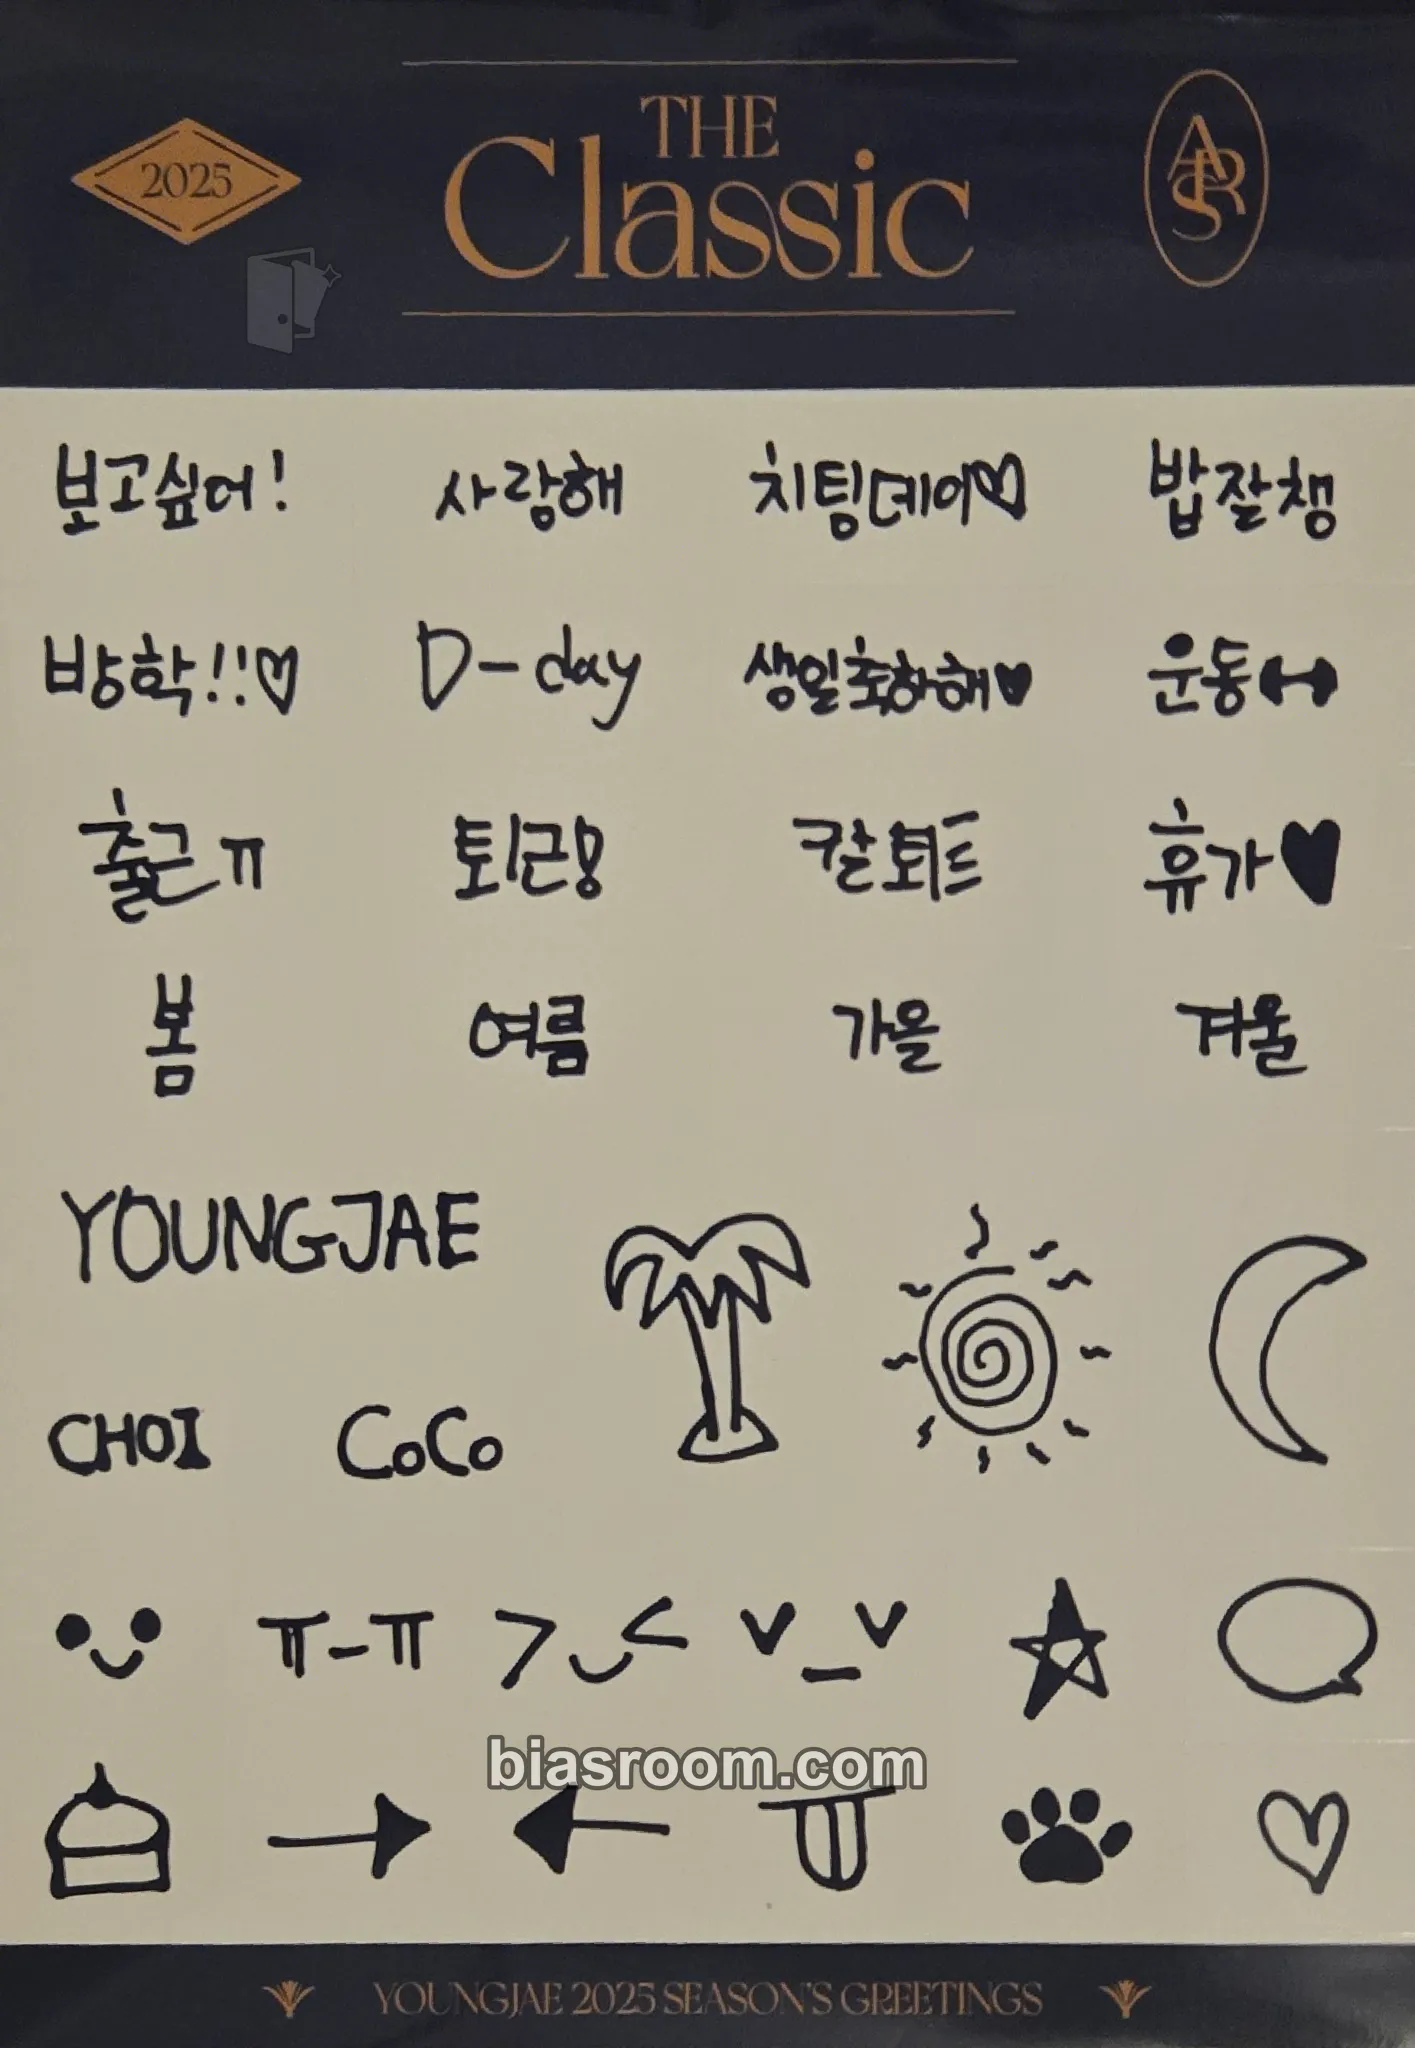 THE
2025
Classic
ARS
보고싶어! 사랑해 치팅데이♡ 밥잘챙
방학!!♡ D-day 생일축하해♥ 운동
출근ㅠ 퇴근! 칼퇴트 휴가♥
봄 여름 가을 겨울
YOUNGJAE
CHOI COCO
ㅠ-ㅠ >‿< v_v
biasroom.com
YOUNGJAE 2025 SEASON'S GREETINGS